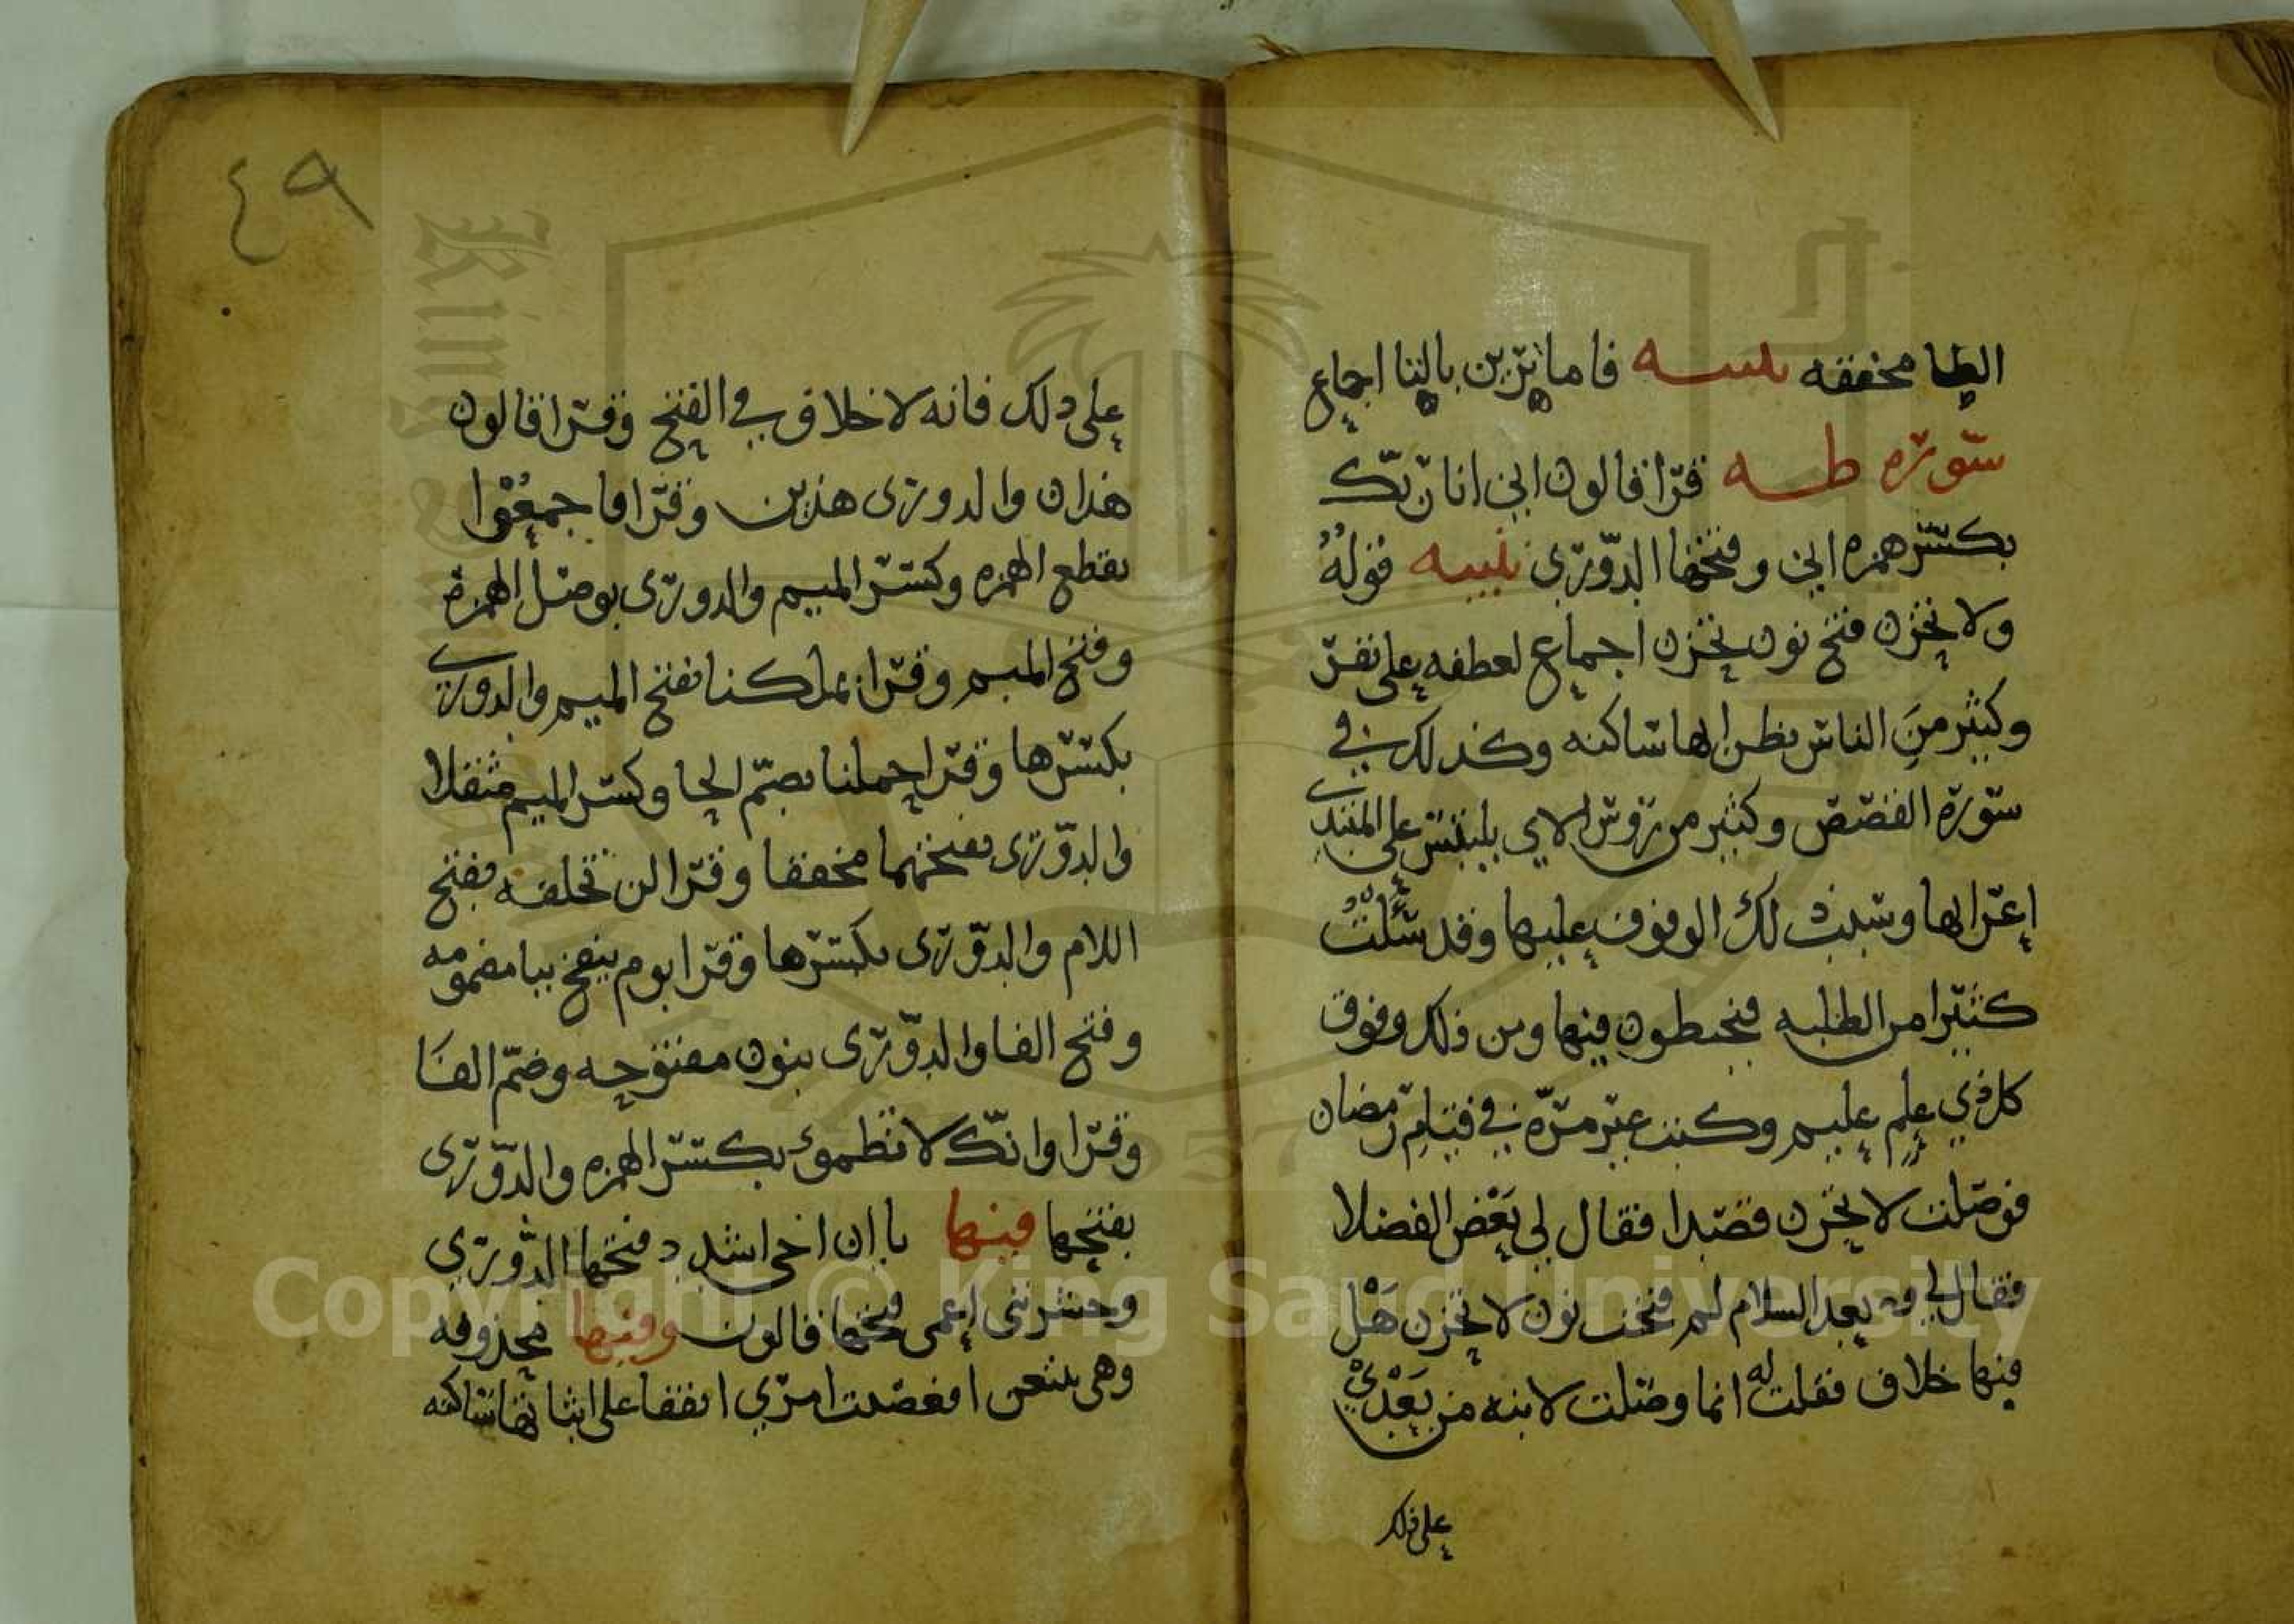 الطا مخففه تنبيه فاما ترين باليا اجماع
سورة طه قرا قالون اني انا ربك
بكسر همزه اني وفتحها الدوري تنبيه قوله
ولا تحزن فتح نون تحزن اجماع لعطفه على تقر
وكثير من الناس يظن انها ساكنه وكذلك في
سورة القصص وكثير من رؤوس الاي يلتبس على المبتدي
اعرابها وسبب ذلك الوقوف عليها وقد سئلت
كثيرا من الطلبه فيخبطون فيها ومن ذلك وفوق
كل ذي علم عليم وكنت غير مرة في قيام رمضان
فوصلت لا تحزن قصدا فقال لي بعض الفضلا
فقال لي بعد السلام لم فتحت نون لا تحزن هل
فيها خلاف فقلت له انما وصلت لانبه من بعدي
على ذلك
٤٩
على ذلك فانه لا خلاف في الفتح وقرا قالون
هذان والدوري هذين وقرا فاجمعوا
بقطع الهمزه وكسر الميم والدوري بوصل الهمزة
وفتح الميم وقرا بملكنا بفتح الميم والدوري
بكسرها وقرا حملنا بضم الحا وكسر الميم مثقلا
والدوري بفتحهما مخففا وقرا لن تخلفه بفتح
اللام والدوري بكسرها وقرا يوم ينفخ بيا مضمومه
وفتح الفا والدوري بنون مفتوحه وضم الفا
وقرا وانك لا تظمؤ بكسر الهمزه والدوري
بفتحها فيها يا ان اخي اشدد فتحها الدوري
وحشرتني اعمى فتحها قالون وفيها محذوفه
وهي تتبعن افعصيت امري اتفقا على اثباتها ساكنه
Copyright © King Saud University
King Saud University
1957